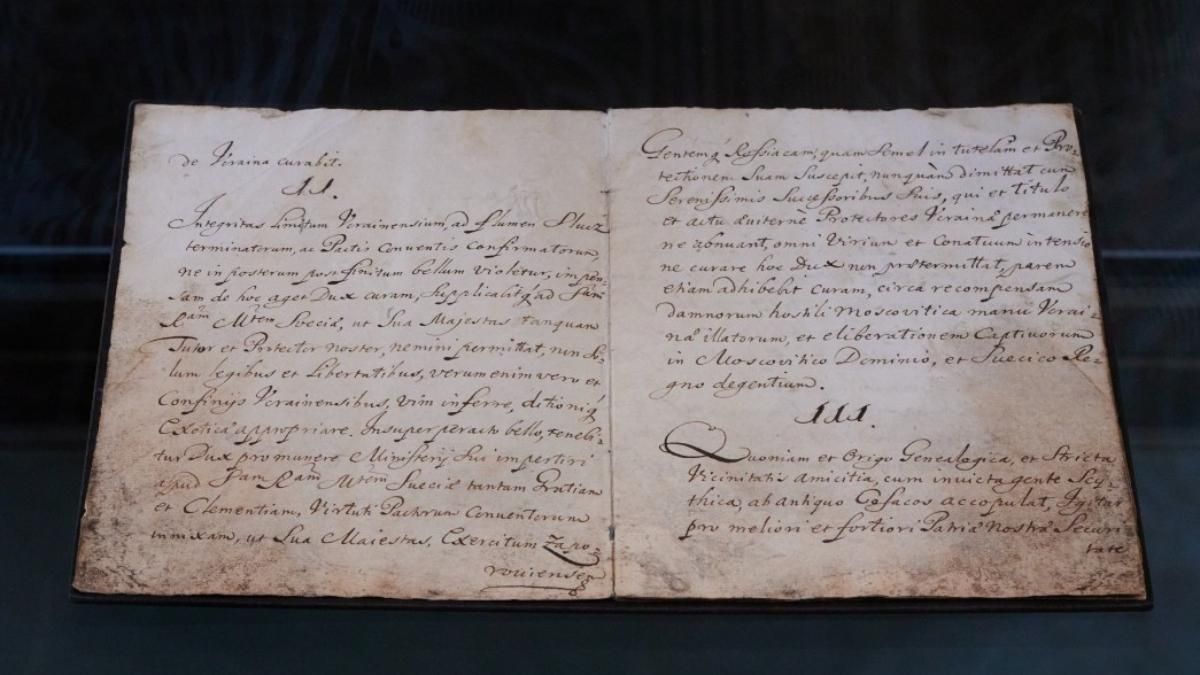 de Ucraina curabit.
II.
Integritas limitum Ucrainensium, ad flumen Sluciz
terminatorum, ac Pactis Conventis confirmatorum,
ne in posterum post finitum bellum violetur, impen-
sam de hoc aget Dux curam, supplicabitq́ ad Sam
Ram Mtem Sveciæ, ut Sua Majestas tanquam
Tutor et Protector noster, nemini permittat, non so-
lum legibus et Libertatibus, verum enim vero et
Confinijs Ucrainensibus, vim inferre, ditioniq́
Exoticæ appropriare. Insuper peracto bello, tenebi-
tur Dux pro munere Ministerij sui impertiri
apud Sam Ram Mtem Sueciæ tantam Gratiam
et Clementiam, Virtuti Pactorum Conventorum
innixam, ut Sua Maiestas, Exercitum Zapo-
roviensem
Gentemq́ Rossiacam, quam semel in tutelam et Pro-
tectionem Suam suscepit, nunquàm dimittat cum
Serenissimis Successoribus suis, qui et titulo
et actu æviternè Protectores Ucrainæ permanere
ne abnuant, omni Virium et Conatuum intensio
ne curare hoc Dux non prætermittat, parem
etiam adhibebit curam, circa recompensam
damnorum hostili Moscovitica manu Ucrai-
næ illatorum, et eliberationem Captivorum
in Moscovitico Dominio, et Suecico Re-
gno degentium.
III.
Quoniam et Origo Genealogica, et stricta
Vicinitatis amicitia, cum invicta gente Scy-
thica, ab antiquo Cosacos accopulat, Igitur
pro meliori et fortiori Patriæ Nostræ Securi
tate